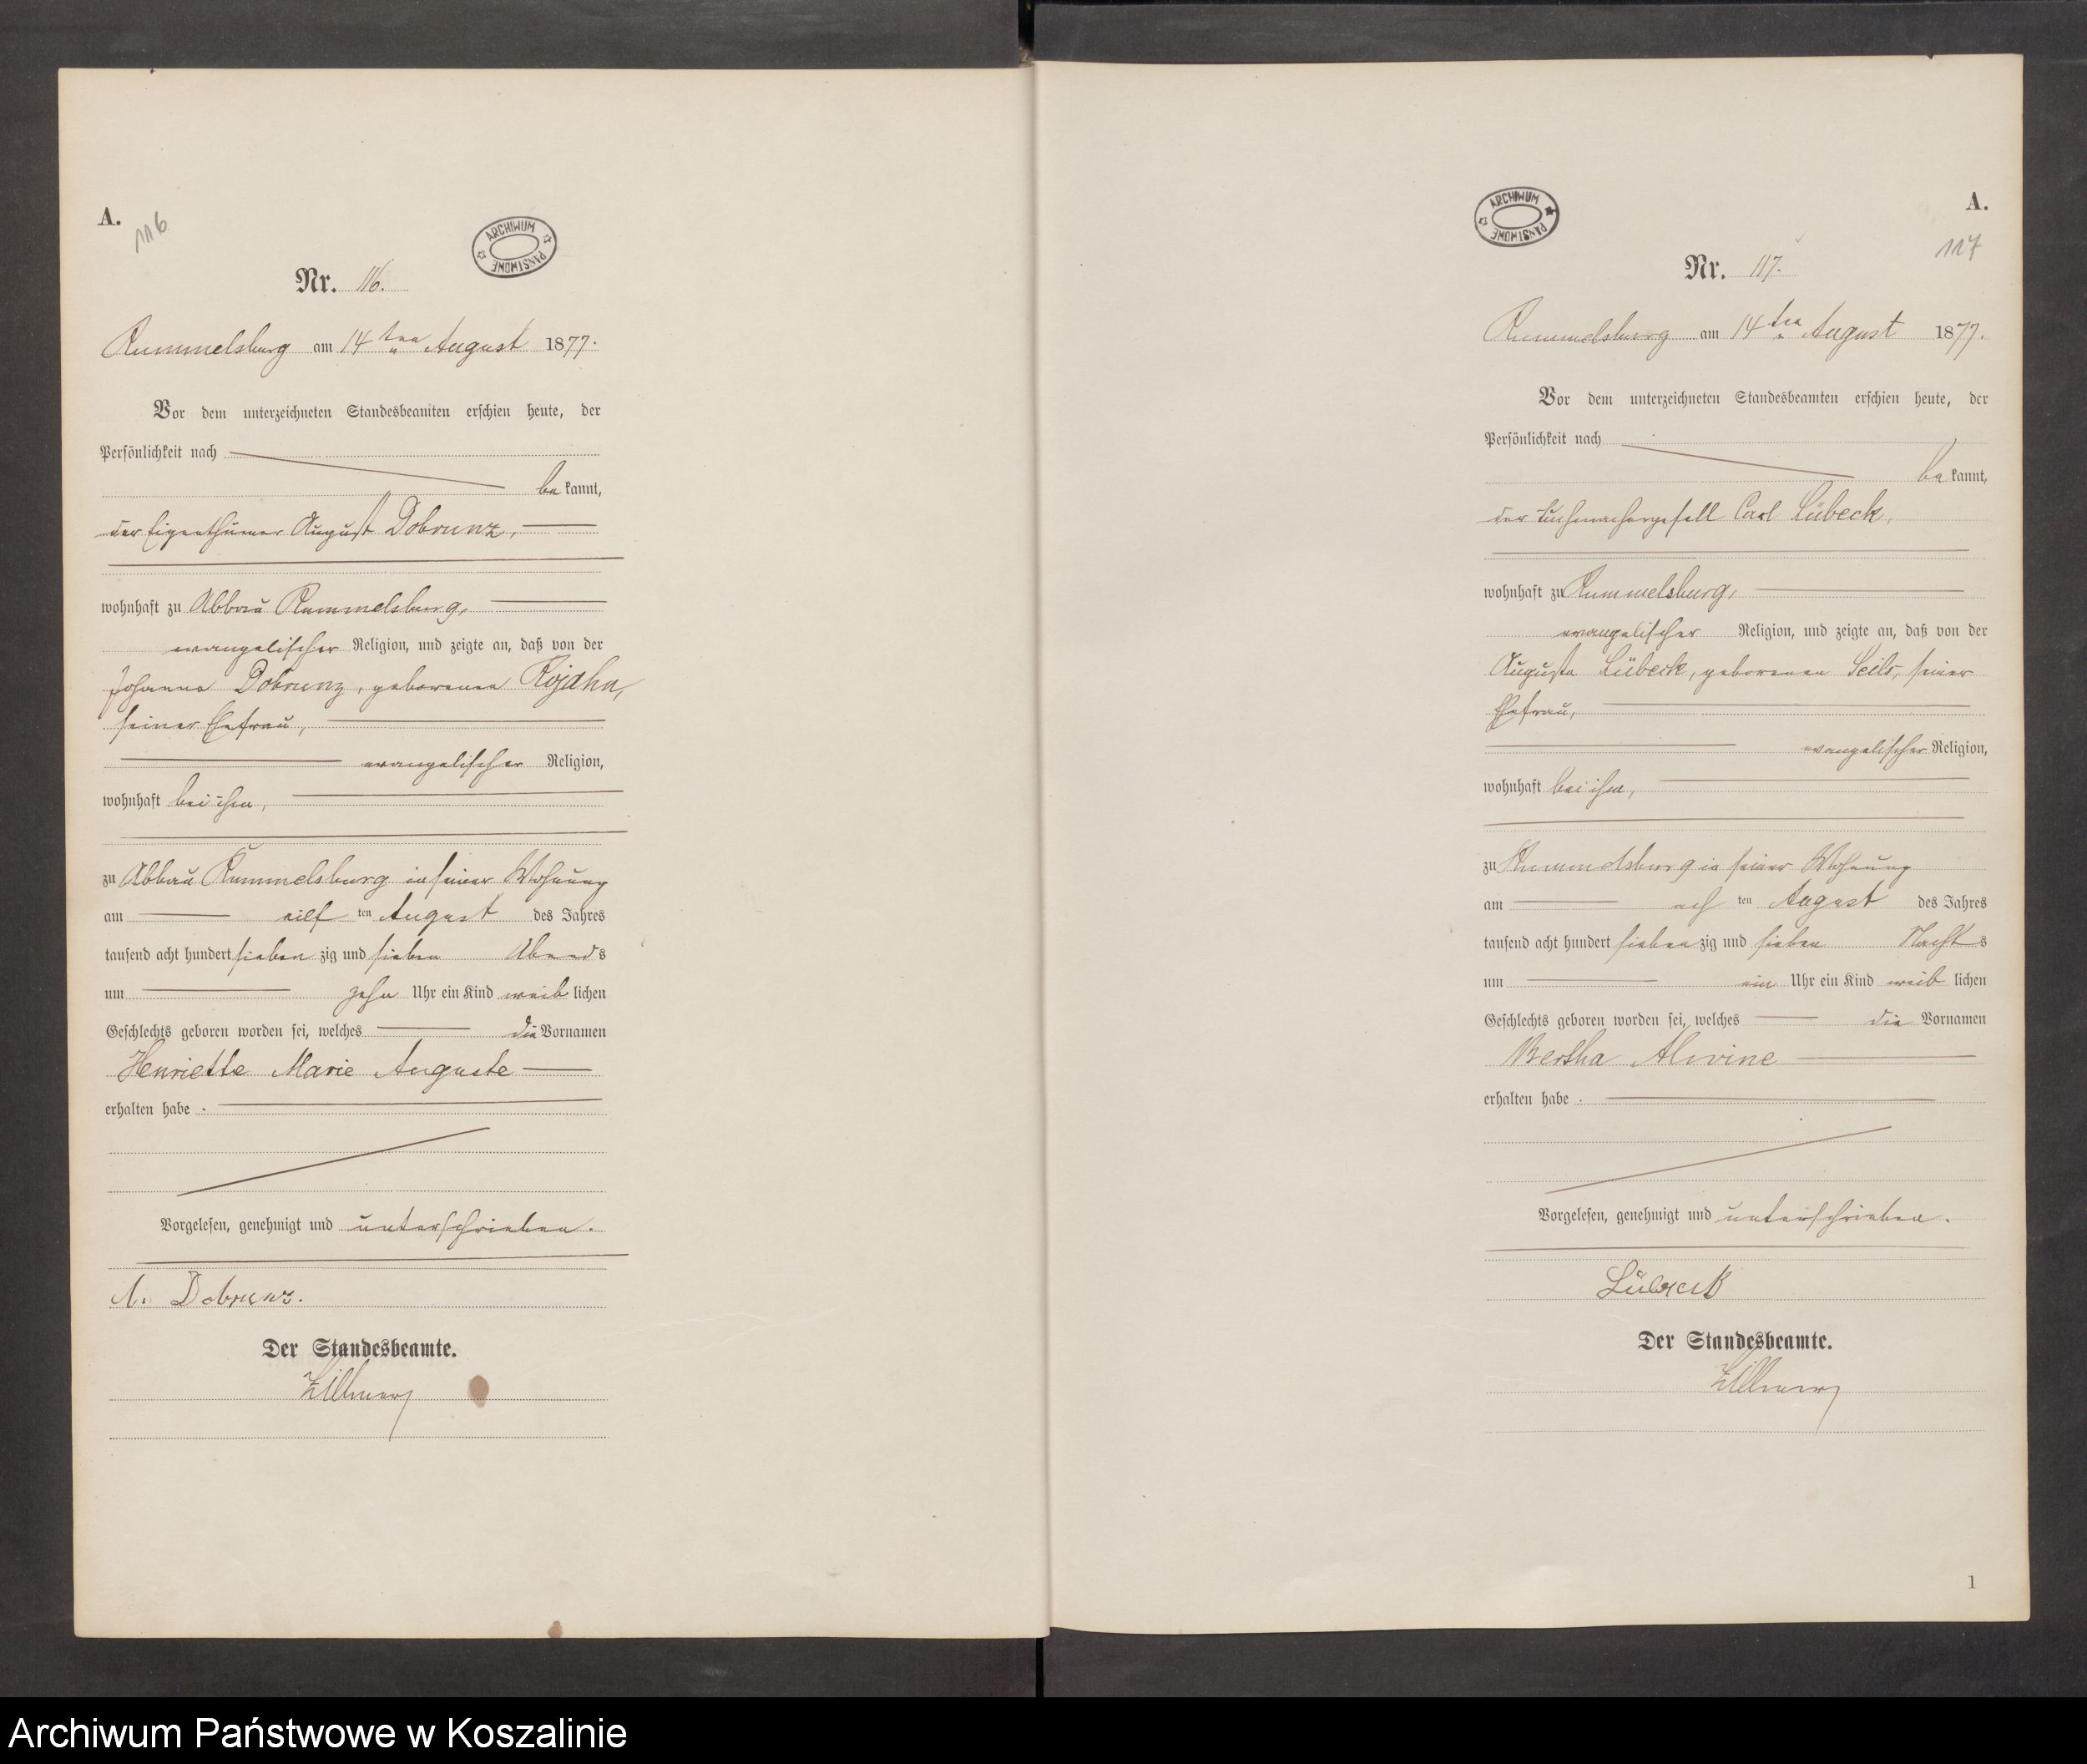 A.
116
ARCHIWUM PAŃSTWOWE
Nr. 116.
Rummelsburg am 14ten August 1877.
Vor dem unterzeichneten Standesbeamten erschien heute, der
Persönlichkeit nach
be kannt,
der Eigenthümer August Dobrunz,
wohnhaft zu Abbau Rummelsburg,
evangelischer Religion, und zeigte an, daß von der
Johanna Dobrunz, geborenen Rojahn,
seiner Ehefrau,
evangelischer Religion,
wohnhaft bei ihm,
zu Abbau Rummelsburg in seiner Wohnung
am eilf ten August des Jahres
tausend acht hundert sieben zig und sieben Abends
um zehn Uhr ein Kind weib lichen
Geschlechts geboren worden sei, welches die Vornamen
Henriette Marie Auguste
erhalten habe.
Vorgelesen, genehmigt und unterschrieben.
A. Dobrunz.
Der Standesbeamte.
Zillmer
ARCHIWUM PAŃSTWOWE
A.
117
Nr. 117.
Rummelsburg am 14ten August 1877.
Vor dem unterzeichneten Standesbeamten erschien heute, der
Persönlichkeit nach
be kannt,
der Tuchmachergesell Carl Lübeck,
wohnhaft zu Rummelsburg,
evangelischer Religion, und zeigte an, daß von der
Auguste Lübeck, geborenen Seils, seiner
Ehefrau,
evangelischer Religion,
wohnhaft bei ihm,
zu Rummelsburg in seiner Wohnung
am ach ten August des Jahres
tausend acht hundert sieben zig und sieben Nachts
um ein Uhr ein Kind weib lichen
Geschlechts geboren worden sei, welches die Vornamen
Bertha Alwine
erhalten habe.
Vorgelesen, genehmigt und unterschrieben.
Lübeck
Der Standesbeamte.
Zillmer
1
Archiwum Państwowe w Koszalinie